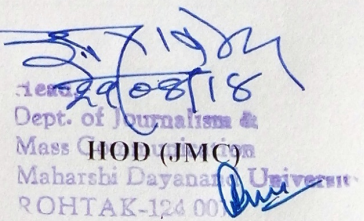 29/08/18
Head
Dept. of Journalism &
Mass Communication
HOD (JMC)
Maharshi Dayanand Universit
ROHTAK-124 001